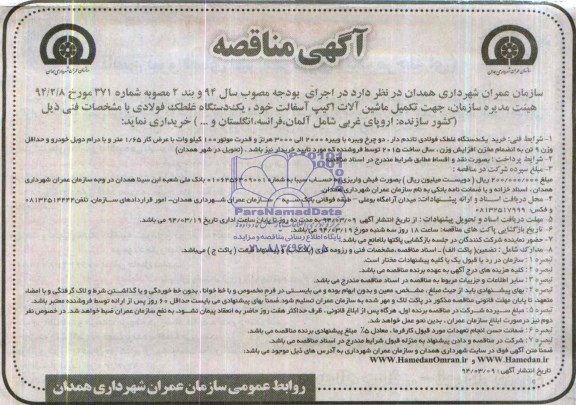 آگهی مناقصه
سازمان عمران شهرداری همدان در نظر دارد در اجرای بودجه مصوب سال ۹۴ و بند ۲ مصوبه شماره ۳۷۱ مورخ ۹۴/۲/۸
هیئت مدیره سازمان، جهت تکمیل ماشین آلات اکیپ آسفالت خود، یکدستگاه غلطک فولادی با مشخصات فنی ذیل
(کشور سازنده: اروپای غربی شامل آلمان، فرانسه، انگلستان و ...) خریداری نماید:
۱- شرایط فنی: خرید یکدستگاه غلطک فولادی تاندم دار، دو چرخ ویبره با ویبره ۲۰۰۰ الی ۳۰۰۰ هرتز و قدرت موتور ۱۰۰ کیلو وات با عرض کار ۱/۶۵ متر و با درام دوبل خودرو و حداقل
وزن ۹ تن به انضمام مخزن افزایش وزن، سال ساخت ۲۰۱۵ توسط فروشنده که مورد تایید خریدار نیز باشد. (تحویل در شهر همدان)
۲- شرایط پرداخت: بصورت نقد و اقساط مطابق شرایط مندرج در اسناد مناقصه
۳- مبلغ سپرده شرکت در مناقصه:
مبلغ ۲۰۰/۰۰۰/۰۰۰ ریال (دویست میلیون ریال) بصورت فیش واریزی به حساب سیبا به شماره بانک ملی شعبه ابن سینا همدان در وجه سازمان عمران شهرداری
همدان، اسناد خزانه و یا ضمانت نامه بانکی به نام سازمان عمران شهرداری همدان
۴- محل دریافت اسناد و ارائه پیشنهادات: میدان آرامگاه بوعلی - طبقه فوقانی بانک سپه - سازمان عمران شهرداری همدان- امور قراردادهای سازمان، تلفن ۰۸۱۳۲۵۱۴۴۴۴
۰۸۱۳۲۵۱۷۹۹۹ فکس
۵- مهلت دریافت اسناد و تحویل پیشنهادات: از تاریخ انتشار آگهی ۹۴/۰۳/۰۹ به مدت ده روز تا پایان ساعت اداری تاریخ ۹۴/۰۳/۱۹ می باشد.
۶- تاریخ بازگشایی پاکت های مناقصه: ساعت ۱۸ روز سه شنبه مورخ ۹۴/۰۳/۱۹ می باشد.
۷- حضور نماینده شرکت کنندگان در جلسه بازگشایی پاکتها بلامانع می باشد.
۸- مدارک شامل: تضمین( پاکت الف)، اسناد مناقصه، مشخصات فنی و رزومه کاری (پاکت ب) و پیشنهاد قیمت (پاکت ج) می باشد.
تبصره ۱: سازمان در رد یا قبول یک یا کلیه پیشنهادات مختار است.
تبصره ۲: کلیه هزینه های درج آگهی به عهده برنده مناقصه می باشد.
تبصره ۳: سایر اطلاعات و جزییات مربوط به مناقصه در اسناد مناقصه مندرج می باشد.
تبصره ۴: بهای پیشنهادی باید از حیث مبلغ، مشخص، معین و بدون ابهام بوده و می بایستی در فرم مخصوص و با خط خوانا، بدون خط خوردگی و یا گذاشتن شرط و لاک گرفتگی و با امضاء
متعهد، تا پایان مهلت قانونی مناقصه مذکور در پاکت لاک و مهر شده به سازمان عمران تسلیم شود. ضمنا بهای پیشنهادی می بایست حداقل ۶۰ روز پس از ارائه توسط فروشنده معتبر باشد.
تبصره ۵: مبلغ سپرده شرکت در مناقصه برنده اول، هرگاه پس از ابلاغ قانونی، ظرف حداکثر هفت روز حاضر به انعقاد پیمان نشود، به نفع سازمان عمران ضبط خواهد شد. در خصوص نفر
دوم نیز درصورت ابلاغ سازمان عمران، بدین نحو عمل خواهد شد.
تبصره ۶: ضمانت حسن انجام تعهدات مورد قبول کارفرما، معادل ۵٪ مبلغ پیشنهادی برنده مناقصه می باشد.
تبصره ۷: شرکت در مناقصه و دادن پیشنهاد به منزله قبول شرایط مندرج در اسناد مناقصه می باشد.
ضمنا متن آگهی فوق در سایت شهرداری همدان و سازمان عمران شهرداری به آدرس های ذیل موجود می باشد:
www.HamedanOmran.ir و www.Hamedan.ir
تاریخ انتشار آگهی: ۹۴/۰۳/۰۹
روابط عمومی سازمان عمران شهرداری همدان
ParsNamadData
پایگاه اطلاع رسانی مناقصه و مزایده